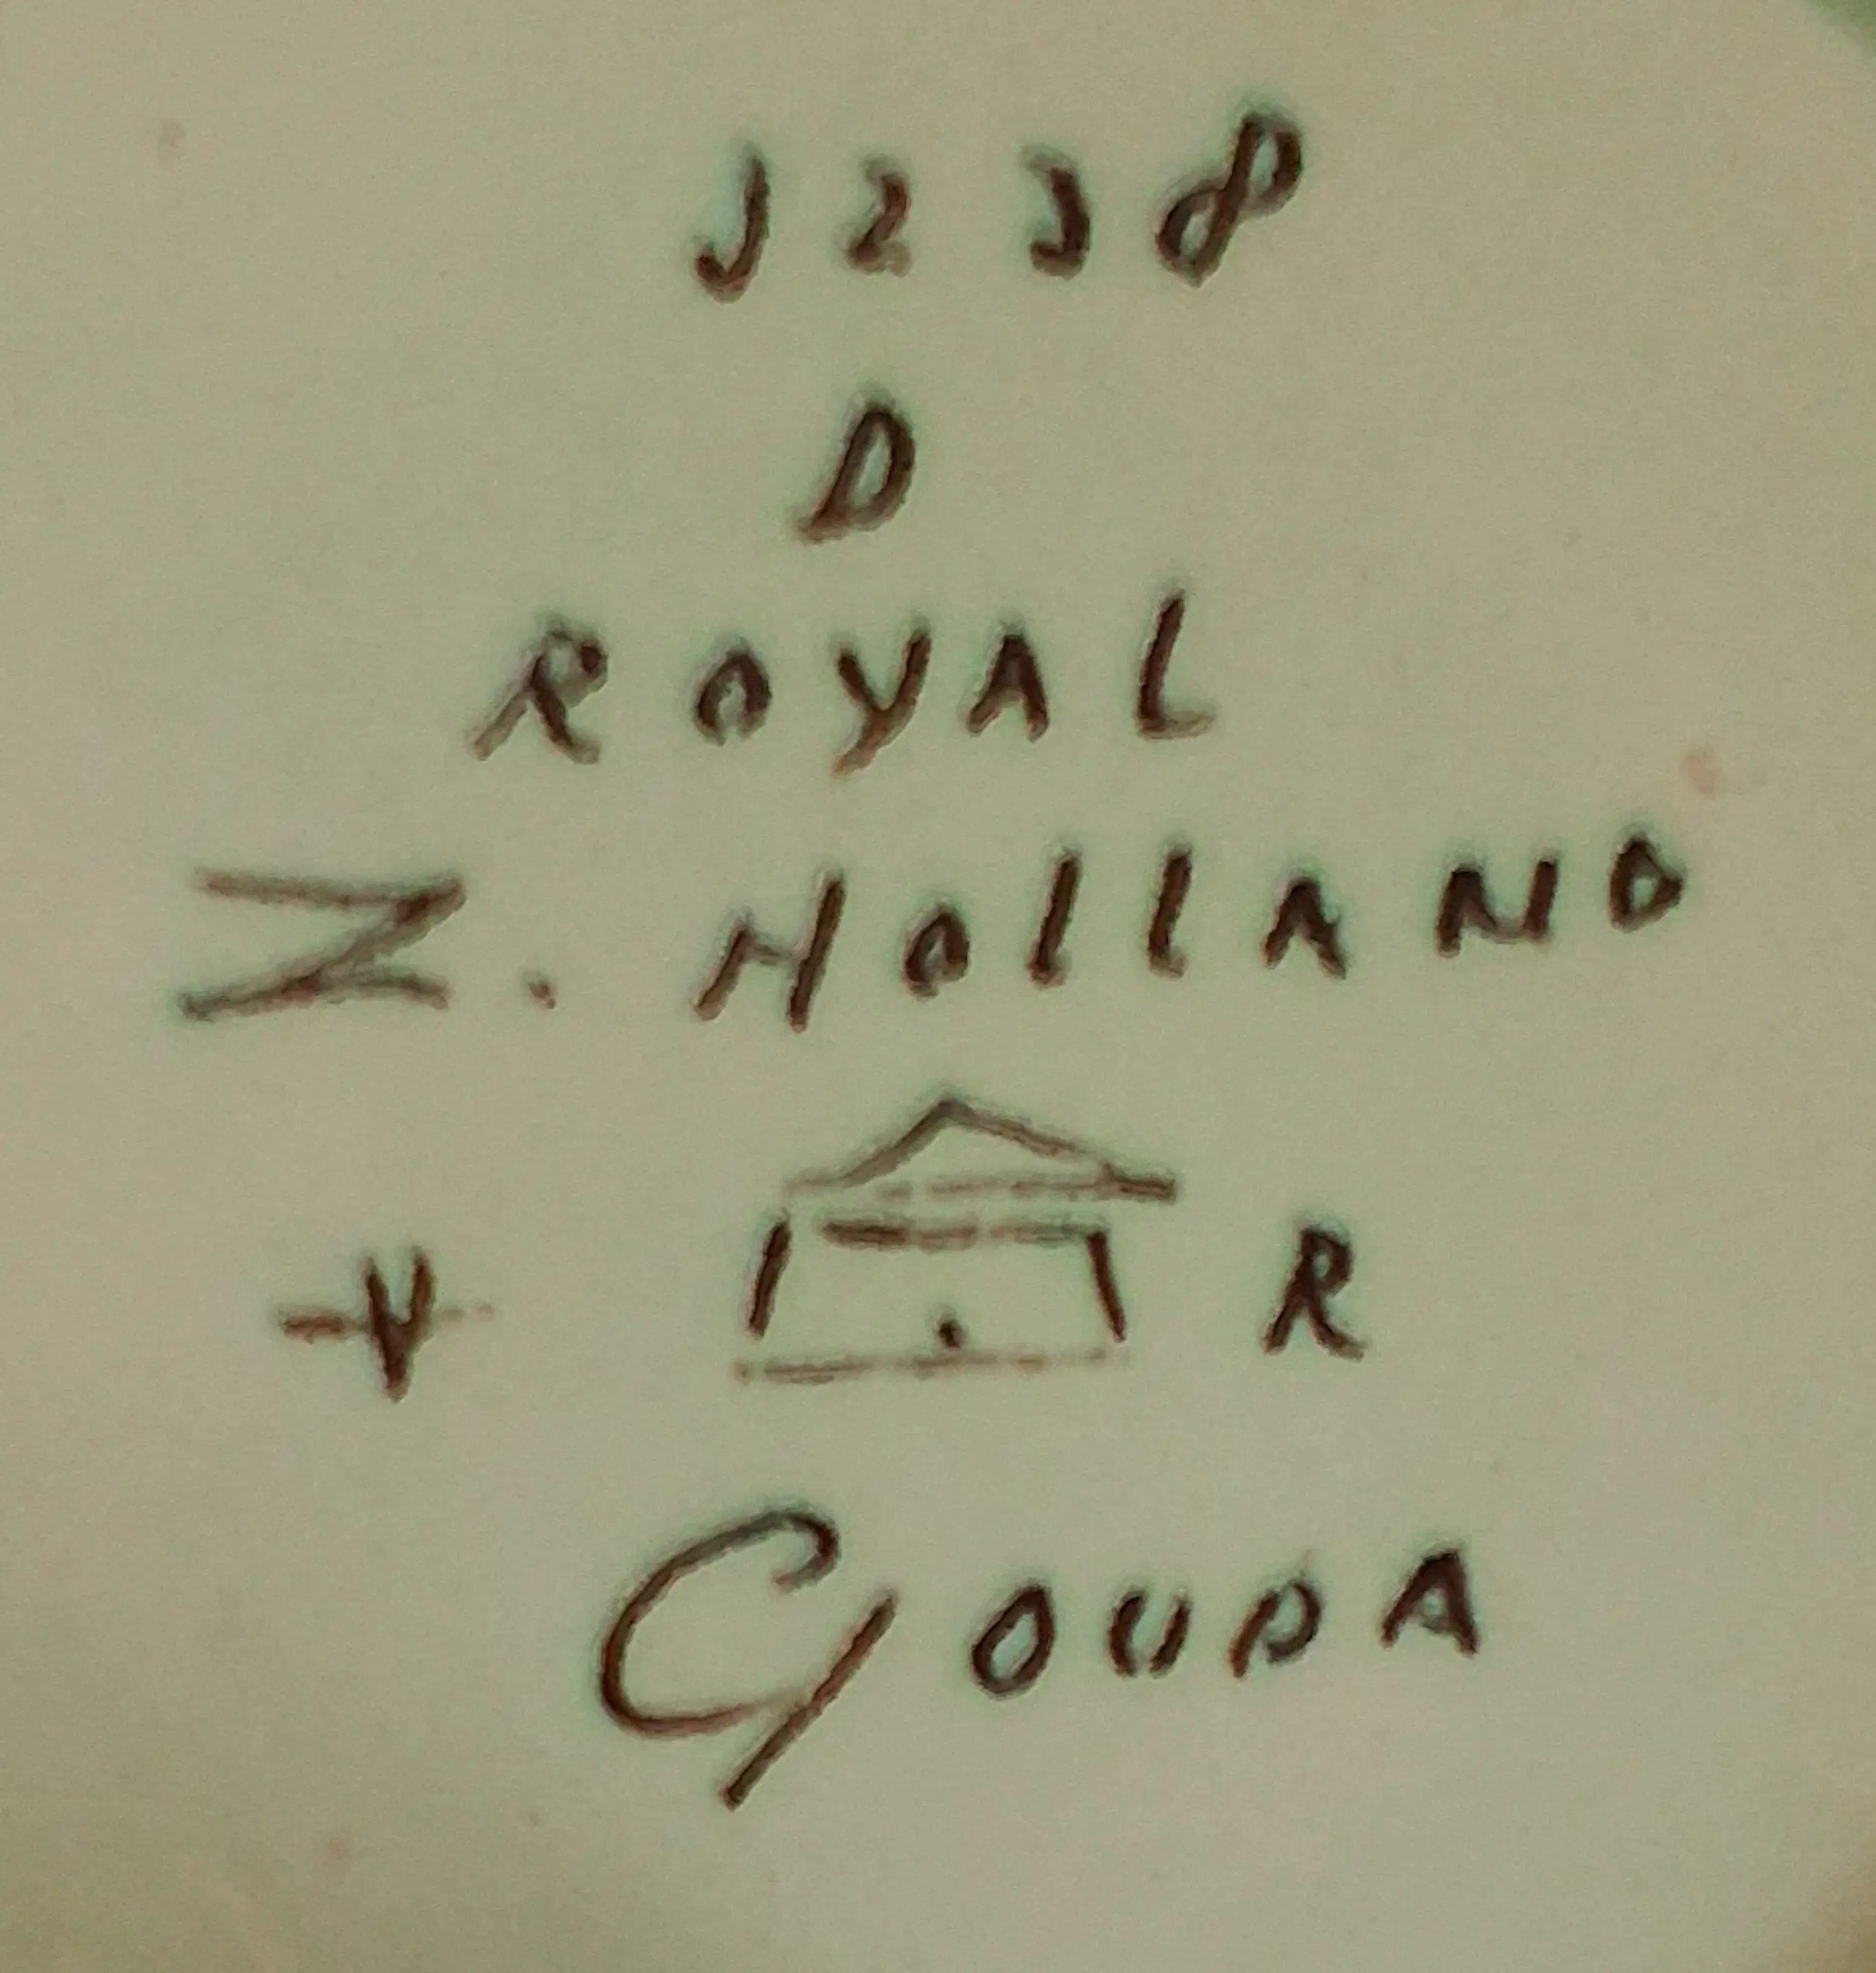 1238
D
ROYAL
Z. HOLLAND
V R
GOUDA